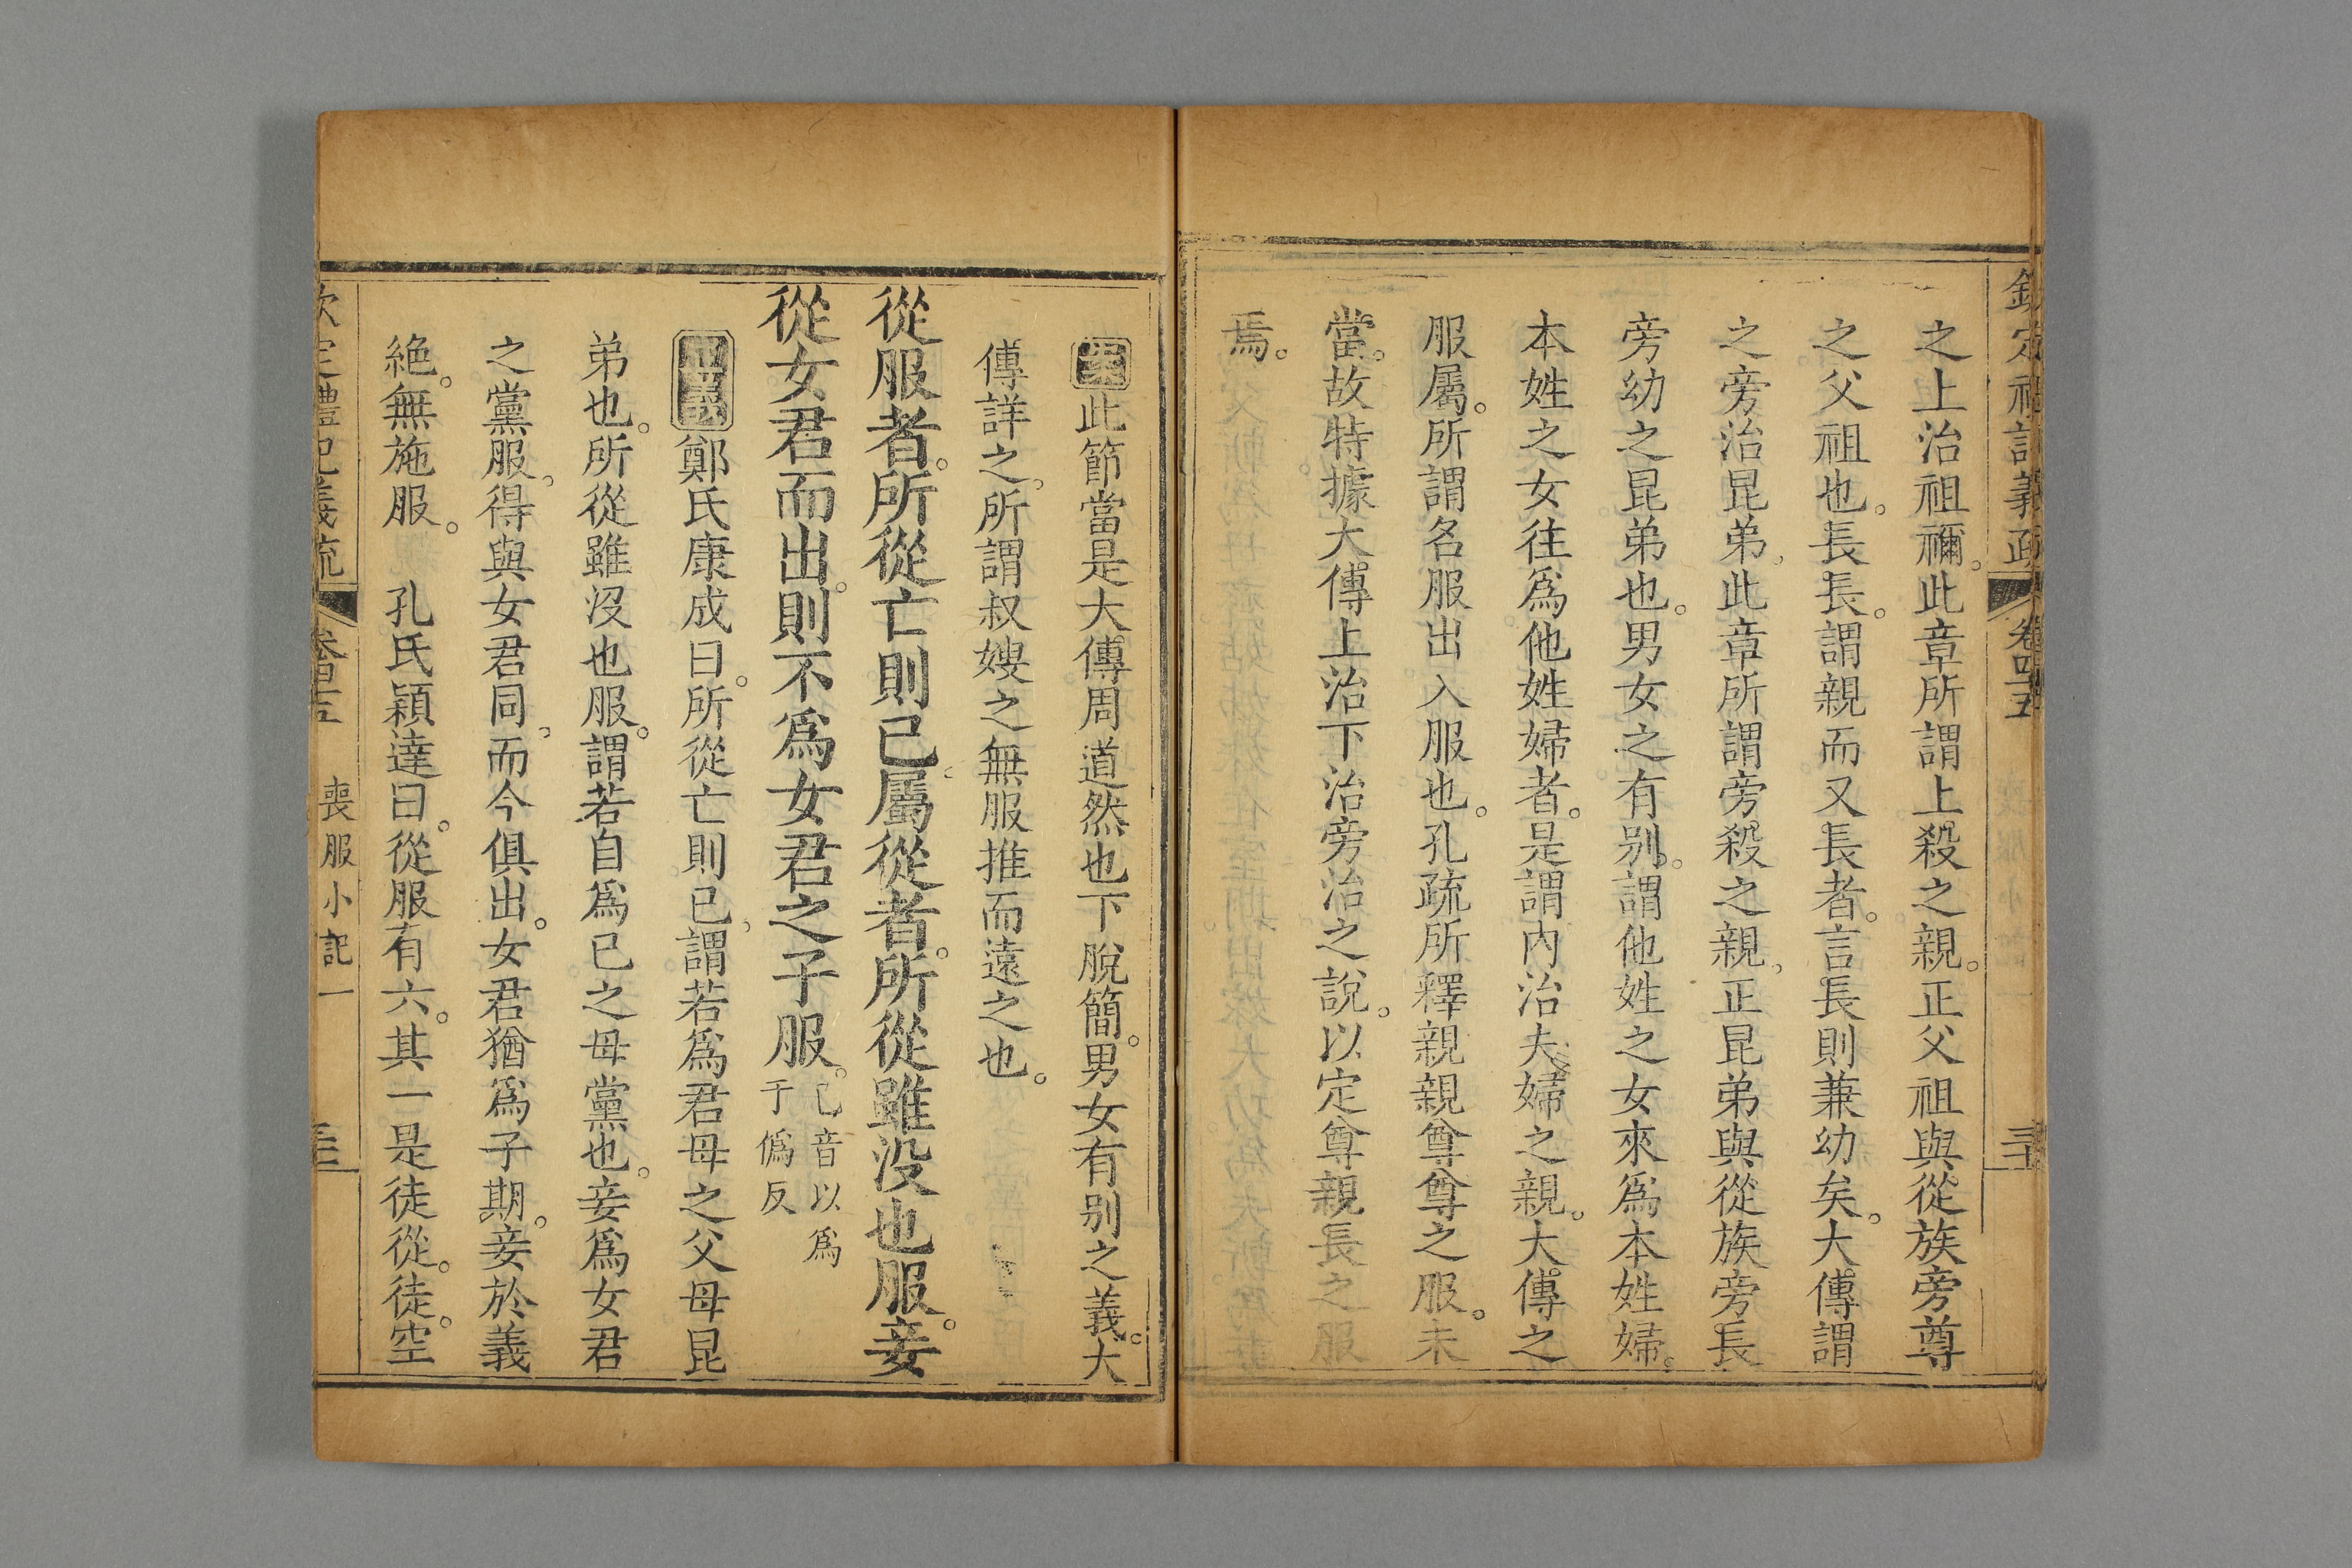 欽定禮記義疏 卷四十五 三十
之上治祖禰。此章所謂上殺之親。正父祖與從族旁尊
之父祖也。長長。謂親而又長者。言長則兼幼矣。大傳謂
之旁治昆弟。此章所謂旁殺之親。正昆弟與從族旁長
旁幼之昆弟也。男女之有别。謂他姓之女來爲本姓婦。
本姓之女往爲他姓婦者。是謂内治夫婦之親。大傳之
服屬。所謂名服出入服也。孔疏所釋親親尊尊之服。未
當。故特據大傳上治下治旁治之說。以定尊親長之服
焉。
此節當是大傳周道然也下脫簡。男女有别之義。大
傳詳之。所謂叔嫂之無服推而遠之也。
從服者。所從亡則已。屬從者。所從雖没也服。妾
從女君而出。則不爲女君之子服。已音以爲
于僞反
鄭氏康成曰。所從亡則已。謂若爲君母之父母昆
弟也。所從雖没也服。謂若自爲已之母黨也。妾爲女君
之黨服。得與女君同。而今俱出。女君猶爲子期。妾於義
絶。無施服。 孔氏穎達曰。從服有六。其一是徒從。徒。空
欽定禮記義疏 卷四十五 喪服小記一